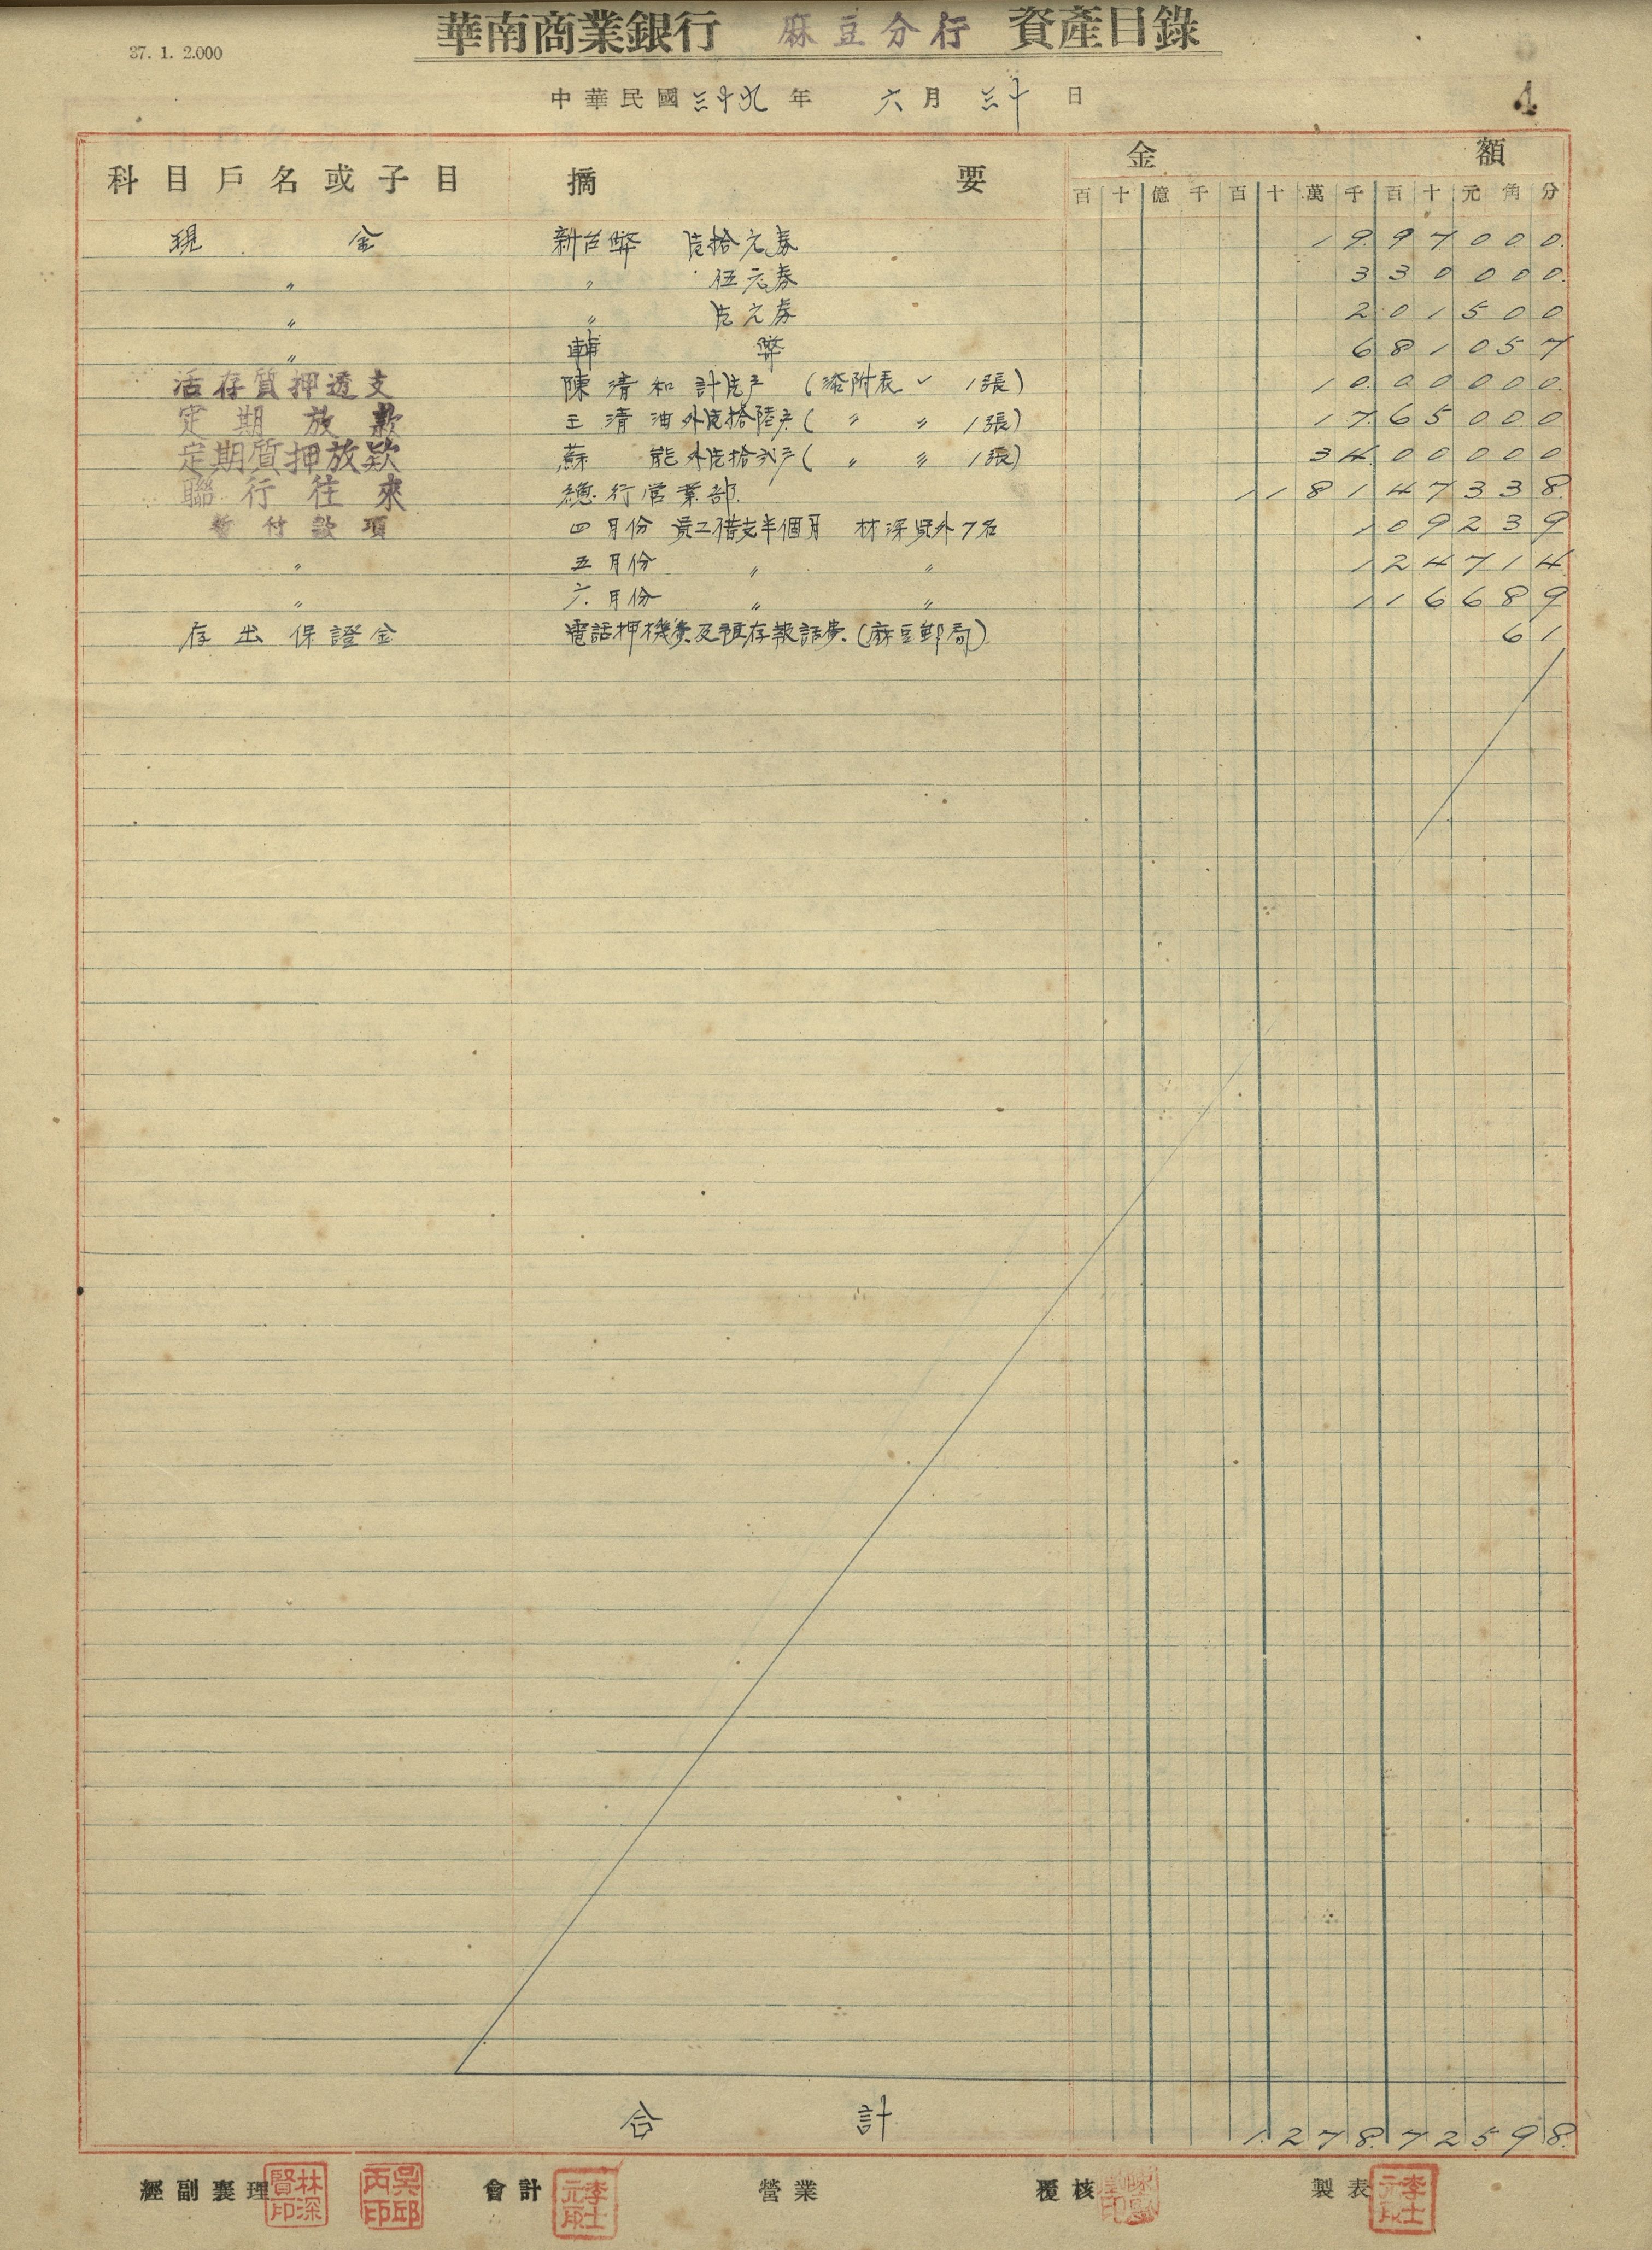 37. 1. 2.000
華南商業銀行 麻豆分行 資產目錄
中華民國 三十九 年 六 月 三十 日
4
科目戶名或子目 摘 要 金 額
百 十 億 千 百 十 萬 千 百 十 元 角 分
現 金 新台幣 壱拾元券 1997000
〃 〃 伍元券 330000
〃 〃 壱元券 201500
〃 輔 幣 681057
活存質押透支 陳清和 計壱戶 (添附表 ✓ 1張) 1000000
定期放款 王清油外壱拾陸戶 ( 〃 〃 1張) 1765000
定期質押放款 蘇 能外壱拾弍戶 ( 〃 〃 1張) 3400000
聯行往來 總行営業部 118147338
暫付款項 四月份 員工借支半個月 林深賢外7名 109239
〃 五月份 〃 〃 124714
〃 六月份 〃 〃 116689
存出保證金 電話押機費及預存報話費 (麻豆郵局) 61
合 計 127872598
經副襄理 林深賢印 吳邱丙印 會計 李士元印 營業 覆核 製表 李士元印